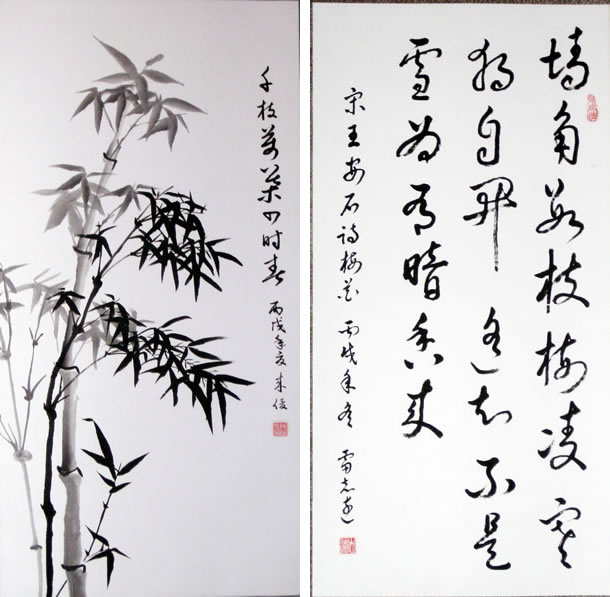 千枝萬葉四时春
丙戌年夏
墙角数枝梅凌寒
独自开遥知不是
雪为有暗香来
宋王安石诗梅花 丙戌年冬 雷志远